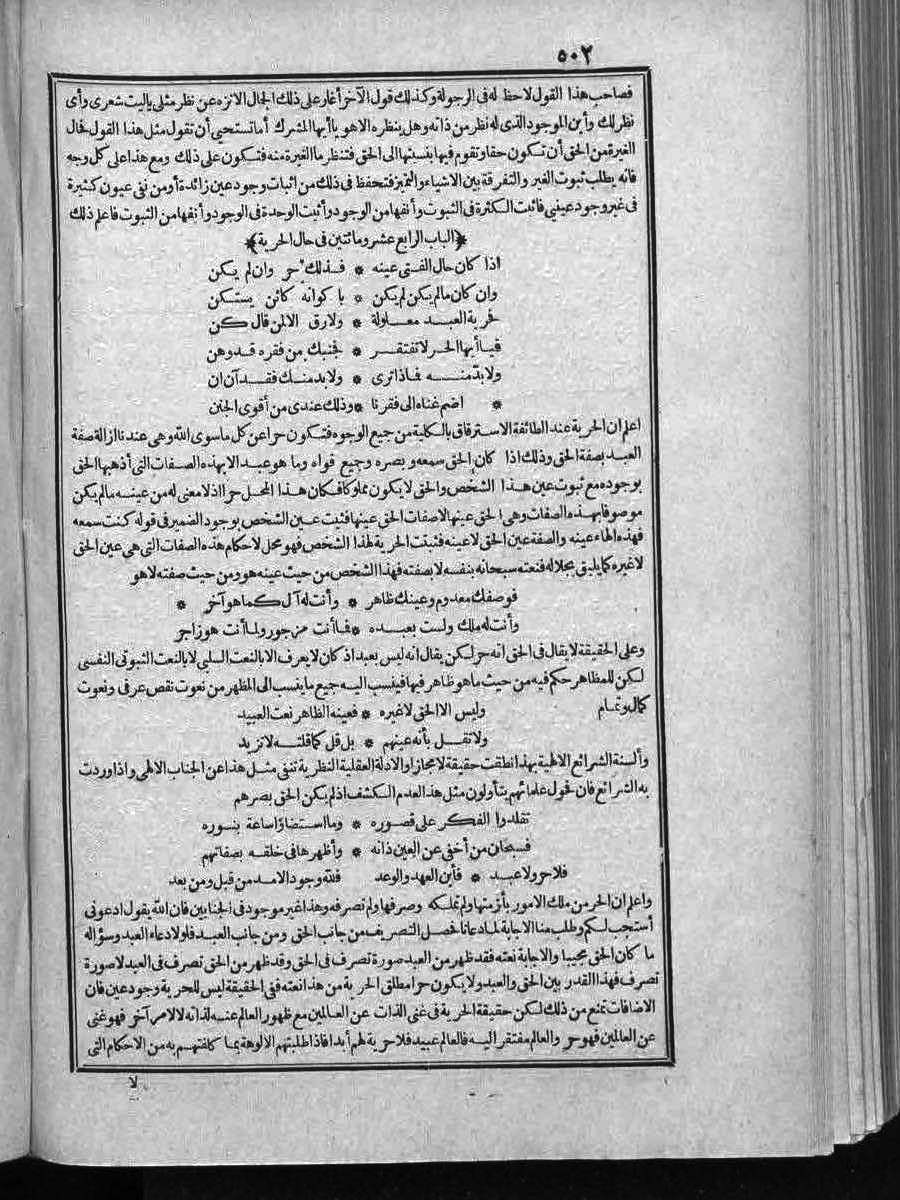 ٥٠٢
فصاحب هذا القول لاحظ له فى الرجولة وكذلك قول الآخر أغار على ذلك الجمال الانزه عن نظر مثلى ياليت شعرى وأى
نظر لك وأين الموجود الذى له نظر من ذاته وهل ينظره الا هو يا أيها المشرك أما تستحى أن تقول مثل هذا القول فحال
الغيرة من الحق أن تكون حقا وتقوم فيها بنسبتها الى الحق فتنظر ما الغيرة منه فتكون على ذلك ومع هذا على كل وجه
فانه يطلب ثبوت الغير والتفرقة بين الاشياء والتميز فتحفظ فى ذلك من اثبات وجود عين زائدة أو من نفى عيون كثيرة
فى غير وجود عينى فاثبت الكثرة فى الثبوت وأنفها من الوجود وأثبت الوحدة فى الوجود وأنفها من الثبوت فاعلم ذلك
﴿الباب الرابع عشر ومائتين فى حال الحرية﴾
اذا كان حال الفتى عينه * فذلك حر وان لم يكن
وان كان مالم يكن لم يكن * با كوانه كائن يستكن
فحرية العبد معلولة * ولا رق الا لمن قال كن
فيا أيها الحر لا تفتقر * بجنبك من فقره قد وهن
ولا بد منه فماذا ترى * ولا بد منك فقد آن ان
* اضم غناه الى فقرنا * وذلك عندى من أقوى الجنن
اعلم ان الحرية عند الطائفة الاسترقاق بالكلية من جميع الوجوه فتكون حرا عن كل ما سوى الله وهى عندنا ازالة صفة
العبد بصفة الحق وذلك اذا كان الحق سمعه وبصره وجميع قواه وما هو عبد الا بهذه الصفات التى أذهبها الحق
بوجوده مع ثبوت عين هذا الشخص والحق لا يكون مملوكا فكان هذا المحل حرا اذ لا معنى له من عينه مالم يكن
موصوفا بهذه الصفات وهى الحق عينها لا صفات الحق عينها فثبت عين الشخص بوجود الضمير فى قوله كنت سمعه
فهذه الهاء عينه والصفة عين الحق لا عينه فثبتت الحرية لهذا الشخص فهو محل لاحكام هذه الصفات التى هى عين الحق
لا غيره كما يليق بجلاله فنعته سبحانه بنفسه لا بصفته فهذا الشخص من حيث عينه هو ومن حيث صفته لا هو
فوصفك معدوم وعينك ظاهر * وأنت له آل كما هو آخر *
وأنت له ملك ولست بعبده * فما أنت مزجور ولما أنت هو زاجر
وعلى الحقيقة لا يقال فى الحق انه حر لكن يقال انه ليس بعبد اذ كان لا يعرف الا بالنعت السلبى لا بالنعت الثبوتى النفسى
لكن للمظاهر حكم فيه من حيث ما هو ظاهر فيها فينسب اليه جميع ما ينسب الى المظهر من نعوت نقص عرفى ونعوت
كمال وتمام وليس الا الحق لا غيره * فعينه الظاهر نعت العبيد
ولا تقل بأنه عينهم * بل قل كما قلته لا تزيد
وألسنة الشرائع الالهية بهذا نطقت حقيقة لا مجازا والادلة العقلية النظرية تنفى مثل هذا عن الجناب الالهى واذا وردت
به الشرائع فان فحول علمائهم يتأولون مثل هذا لعدم الكشف اذ لم يكن الحق بصرهم
تقلدوا الفكر على قصوره * وما استضاؤا ساعة بنوره
فسبحان من أخفى عن العين ذاته * وأظهرها فى خلقه بصفاتهم
فلا حر ولا عبد * فأين العهد والوعد فلله وجود الامد من قبل ومن بعد
واعلم ان الحر من ملك الامور بأزمتها ولم تملكه وصرفها ولم تصرفه وهذا غير موجود فى الجنابين فان الله يقول ادعونى
أستجب لكم وطلب منا الاجابة لما دعانا فحصل التصريف من جانب الحق ومن جانب العبد فلولا دعاء العبد وسؤاله
ما كان الحق مجيبا والاجابة نعته فقد ظهر من العبد صورة تصرف فى الحق وقد ظهر من الحق تصرف فى العبد لا صورة
تصرف فهذا القدر بين الحق والعبد ولا يكون حرا مطلق الحرية من هذا نعته ففى الحقيقة ليس للحرية وجود عين فان
الاضافات تمنع من ذلك لكن حقيقة الحرية فى غنى الذات عن العالمين مع ظهور العالم عنه لذاته لا لامر آخر فهو غنى
عن العالمين فهو حر والعالم مفتقر اليه فالعالم عبيد فلا حرية لهم أبدا فاذا طلبتهم الالوهة بما كلفتهم به من الاحكام التى
لا